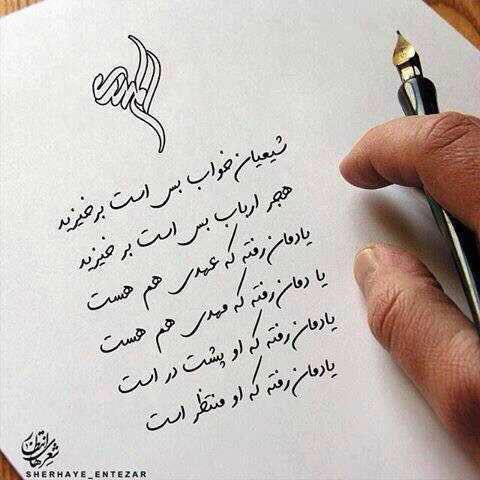 المهدی
شیعیان خواب بس است برخیزید
هجر ارباب بس است برخیزید
یادمان رفته که عهدی هم هست
یادمان رفته که مهدی هم هست
یادمان رفته که او پشت در است
یادمان رفته که او منتظر است
شعرهای انتظار
SHERHAYE_ENTEZAR